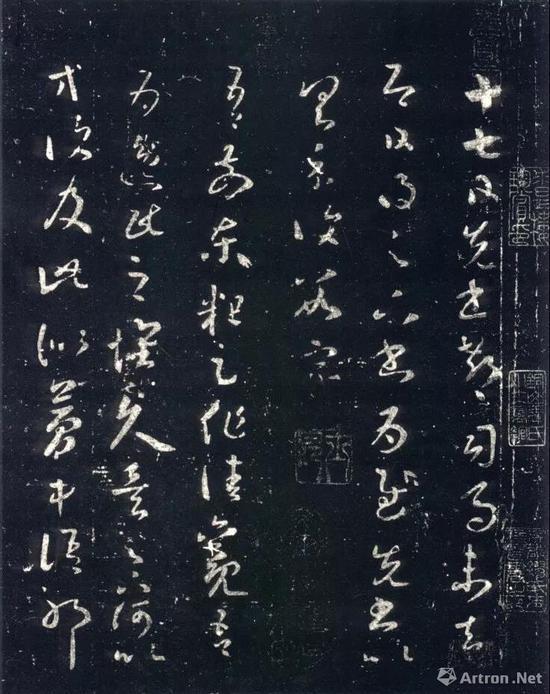 十七日先書郗司馬未去
即日得足下書為慰先書以
具示復數字
吾前東粗足作佳觀吾
為逸民之懷久矣足下何以
等復及此似夢中語耶
Artron.Net